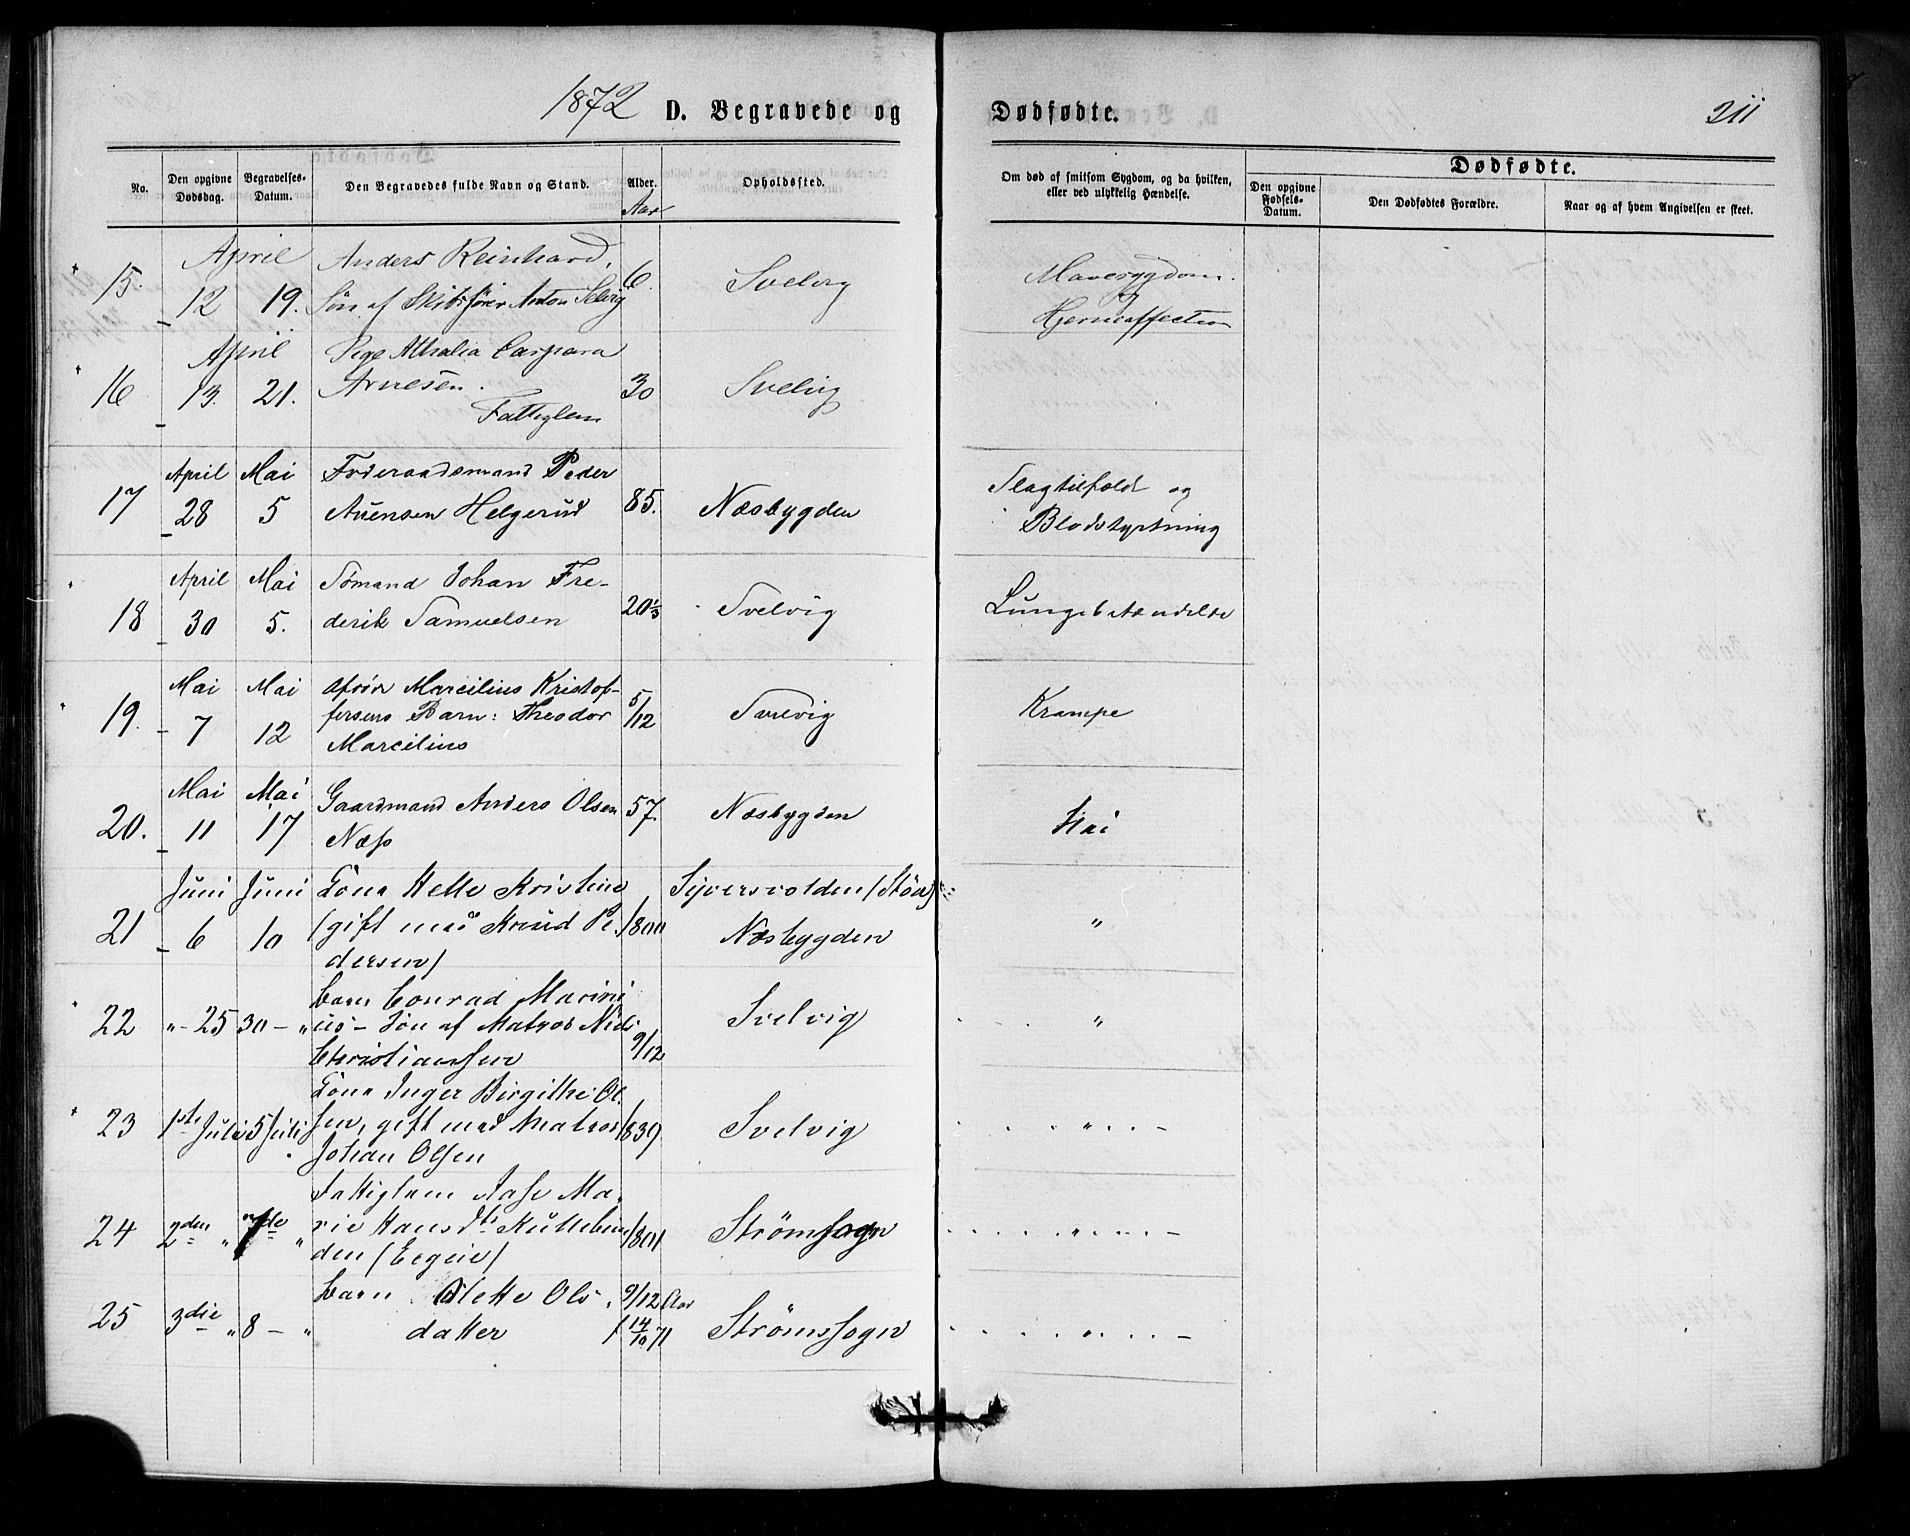 1872 D. Begravede og Dødfødte. 211
No.
Den opgivne Dødsdag.
Begravelses-Datum.
Den Begravedes fulde Navn og Stand.
Alder.
Aar
Opholdssted.
Om død af smitsom Sygdom, og da hvilken, eller ved ulykkelig Hændelse.
Dødfødte.
Den opgivne Fødsels-Datum.
Den Dødfødtes Forældre.
Naar og af hvem Angivelsen er skeet.
April Anders Reinhard,
15. 12 19. Søn af Skibsfører Anton Selvig 6 Svelvig Mavesygdom og
Hjerneaffection
April Pige Athalia Caspara
16 13. 21. Arnesen. 30 Svelvig
Fattiglem
April Mai Føderaadsmand Peder
17 28 5 Helgerud 85. Næsbygden Slagtilfæld og
Blodstyrtning
April Mai Sømand Johan Fre-
18 30 5. derik Samuelsen 20 1/3 Svelvig Lungebetændelse
Mai Mai Marcilius Kristof-
19. 7 12 fersens Barn: Theodor 5/12 Svelvig Krampe
Marcilius
Mai Mai Gaardmand Anders Olsen
20. 11 17 Næss 57. Næsbygden
Juni Juni Kona Kristine Sijversvolden
21 6 10 (gift med Knud Pe- 1800 Næsbygden "
dersen)
Barn Conrad Marini
22 "-25 30-" us- Søn af Matros 9/12 Svelvig "
Christiansen
Kona Inger Birgithe Ol-
23 1ste Juli 5 Juli sen, gift med Matros 1839 Svelvig "
Johan Olsen
Fattiglem Aase Ma-
24 2den " 7de " rie Hansdtr 1801 Strømsogn "
den (Eegeie)
Barn Olette Ols- 9/12 Aar
25 3die " 8 - " datter f 14/10 71 Strømssogn "